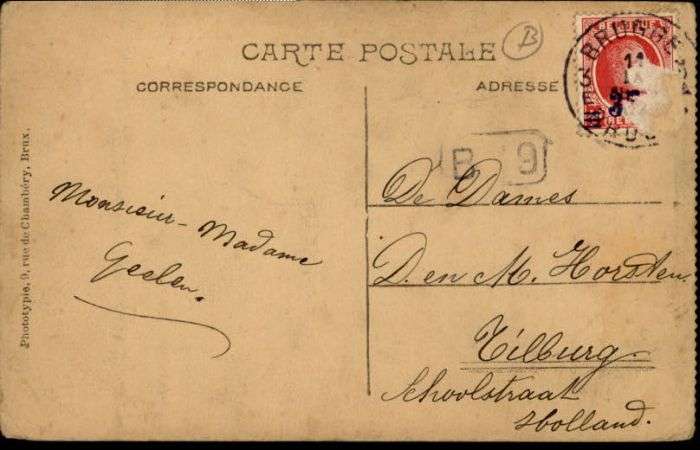 CARTE POSTALE
B
CORRESPONDANCE
ADRESSE
BRUGGE
11
B 9
De Dames
D. en M. Horsten.
Tilburg.
Schoolstraat
Holland.
Monsieur - Madame
Geelen.
Phototypie, 9, rue de Chambéry, Brux.